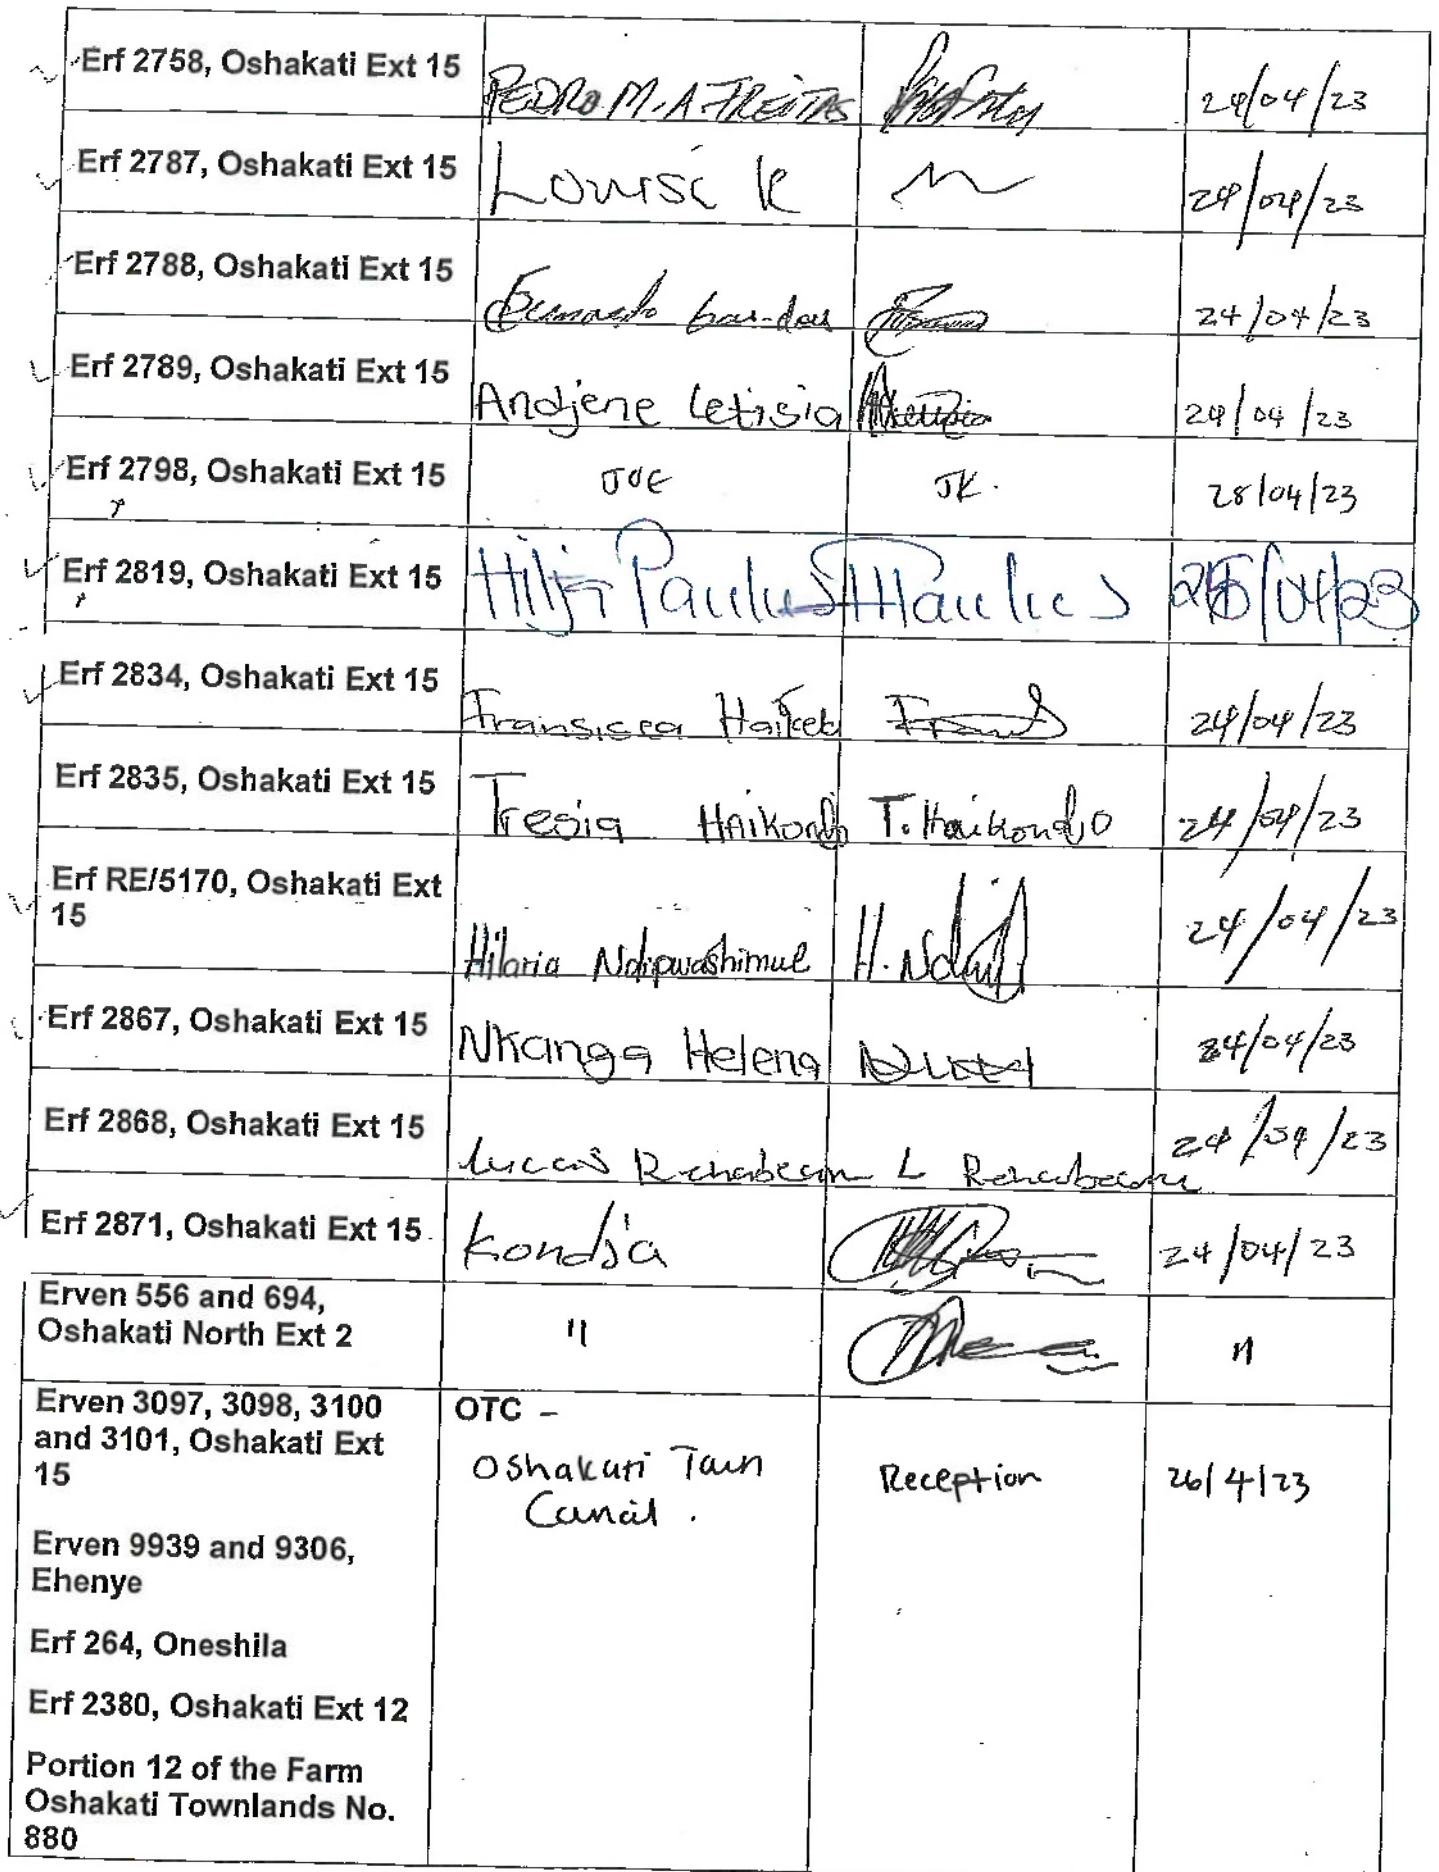 Erf 2758, Oshakati Ext 15 PEDRO M. A. FREITAS 24/04/23
Erf 2787, Oshakati Ext 15 Louise K 24/04/23
Erf 2788, Oshakati Ext 15 24/04/23
Erf 2789, Oshakati Ext 15 Andjene Letisia 24/04/23
Erf 2798, Oshakati Ext 15 JOE JK. 28/04/23
Erf 2819, Oshakati Ext 15 Hilja Paulus H Paulus /04/23
Erf 2834, Oshakati Ext 15 Fransisca 24/04/23
Erf 2835, Oshakati Ext 15 Tresia Haikondjo T. Haikondjo 24/04/23
Erf RE/5170, Oshakati Ext
15 Hilaria 24/04/23
Erf 2867, Oshakati Ext 15 Nkanga Helena 24/04/23
Erf 2868, Oshakati Ext 15 Lucas L 24/04/23
Erf 2871, Oshakati Ext 15 Kondja 24/04/23
Erven 556 and 694,
Oshakati North Ext 2 " "
Erven 3097, 3098, 3100 OTC -
and 3101, Oshakati Ext
15 Oshakati Town Reception 26/4/23
Council.
Erven 9939 and 9306,
Ehenye
Erf 264, Oneshila
Erf 2380, Oshakati Ext 12
Portion 12 of the Farm
Oshakati Townlands No.
880